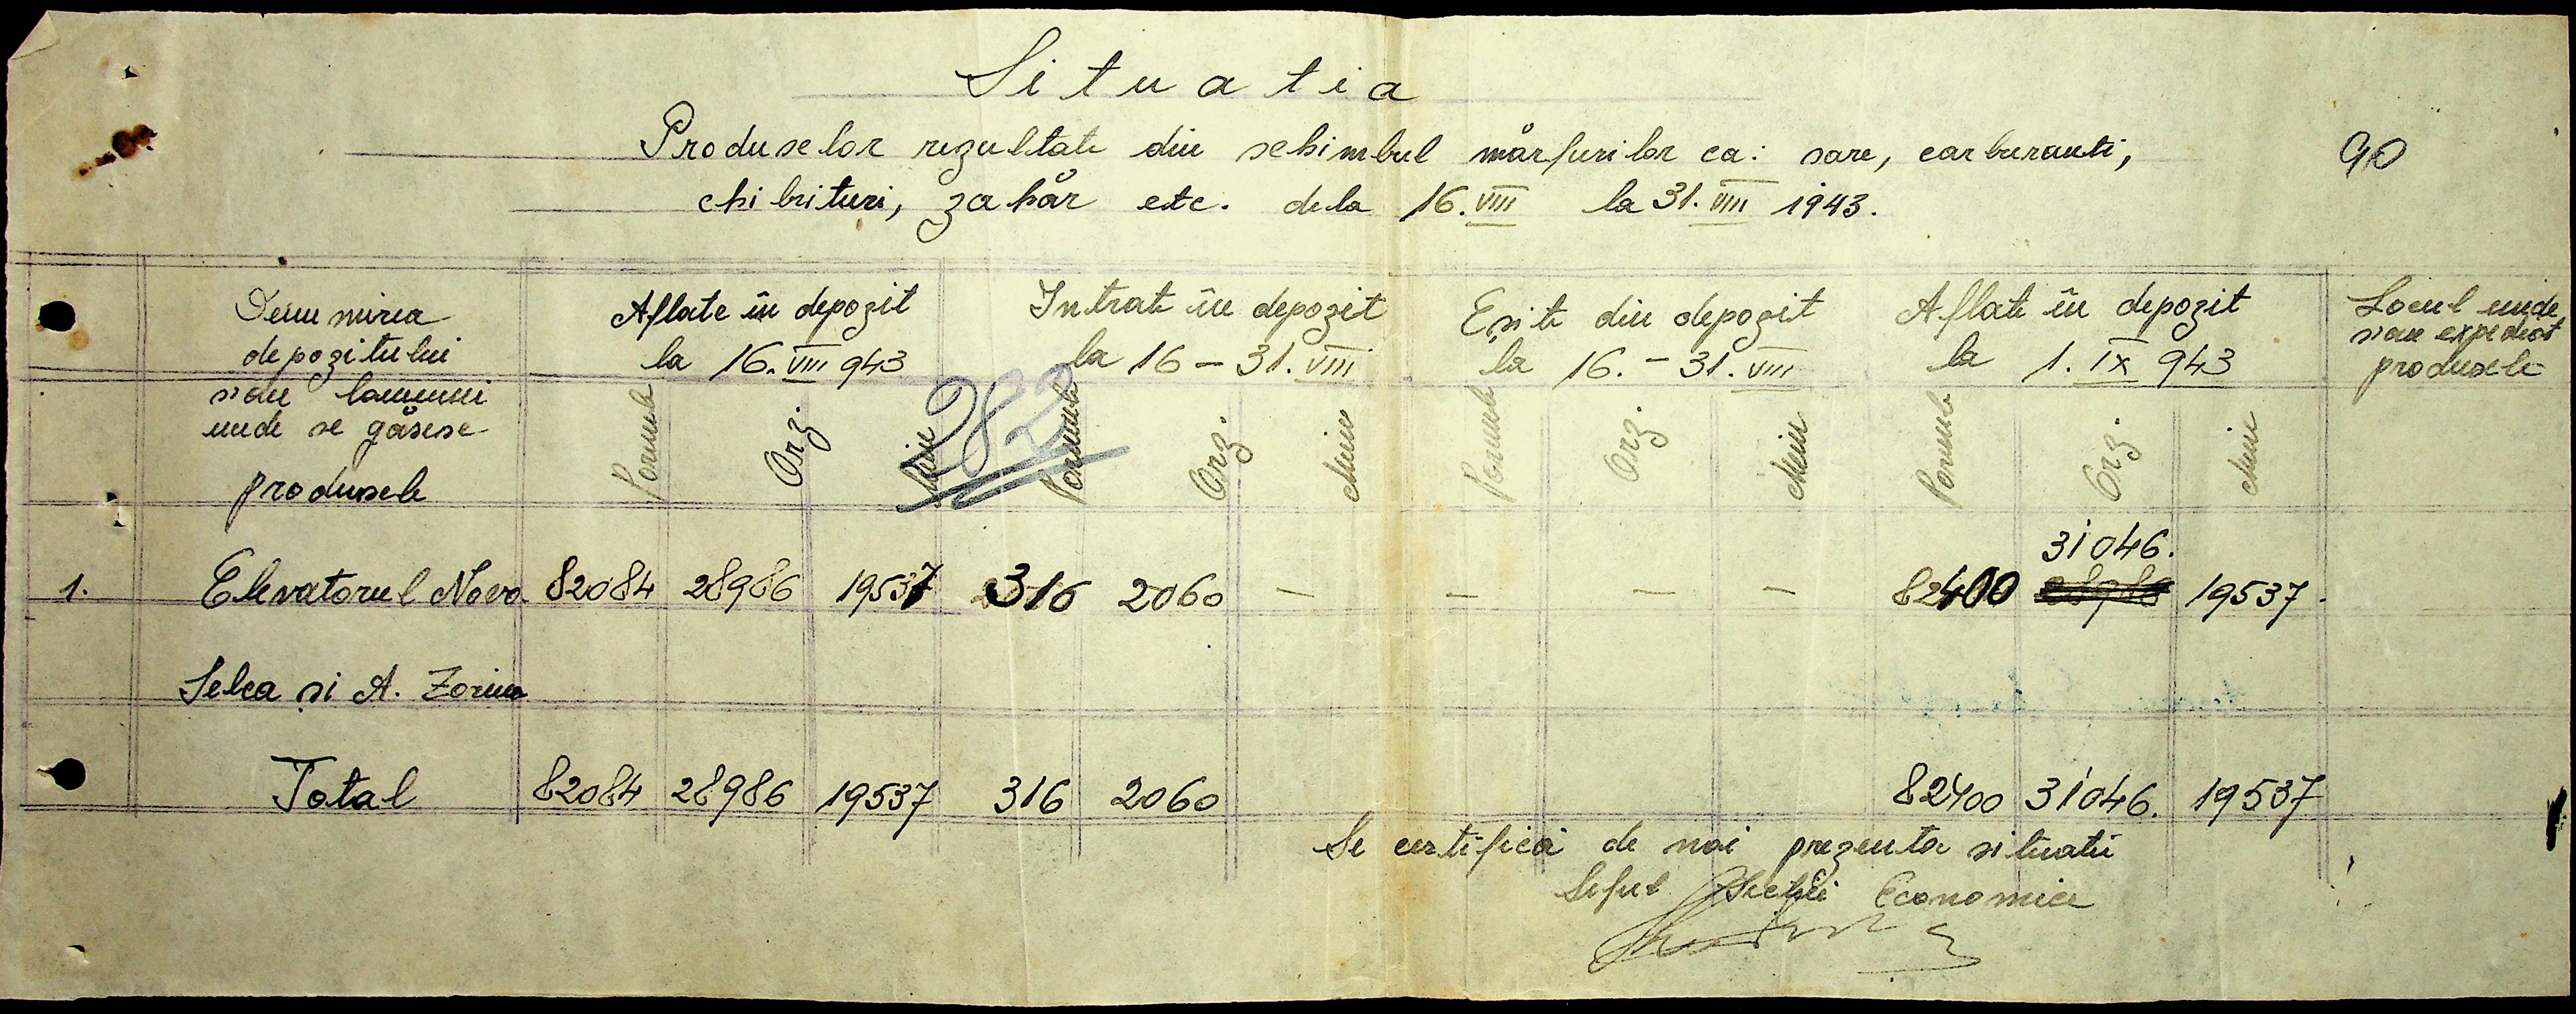 Situatia
Produselor rezultate din schimbul mărfurilor ca: sare, carburanti,
90
chibrituri, zahăr etc. dela 16.VIII la 31.VIII 1943.
Denumirea depozitului sau comunei unde se găsesc produsele
Aflate în depozit la 16.VIII 943
Intrate în depozit la 16 – 31.VIII
Eșite din depozit la 16. – 31.VIII
Aflate în depozit la 1.IX 943
Locul unde sau expediat produsele
282
Porumb Orz. Porumb Orz. Meiu Porumb Orz. Meiu Porumb Orz. Meiu
31046.
1. Elevatorul Nova 82084 28986 19537 316 2060 – – – – 82400 28986 19537.
Selca și A. Zorina
Total 82084 28986 19537 316 2060 82400 31046. 19537
Se certifică de noi prezenta situatie
Seful Sectiei Economice